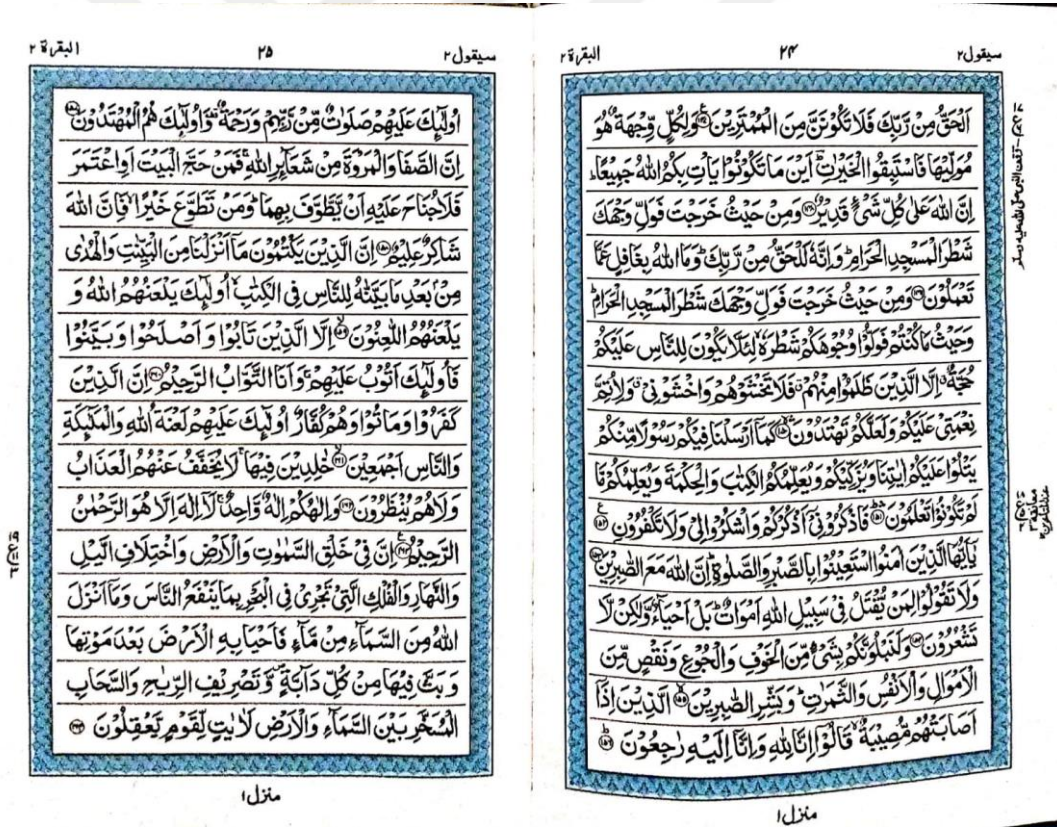 سيقول۲ ۲۴ البقرة۲
اَلْحَقُّ مِنْ رَّبِّكَ فَلَا تَكُوْنَنَّ مِنَ الْمُمْتَرِيْنَ ۝۱۴۷ وَلِكُلٍّ وِّجْهَةٌ هُوَ
مُوَلِّيْهَا فَاسْتَبِقُوا الْخَيْرٰتِ ؕ اَيْنَ مَا تَكُوْنُوْا يَاْتِ بِكُمُ اللّٰهُ جَمِيْعًا ؕ
اِنَّ اللّٰهَ عَلٰى كُلِّ شَيْءٍ قَدِيْرٌ ۝۱۴۸ وَمِنْ حَيْثُ خَرَجْتَ فَوَلِّ وَجْهَكَ
شَطْرَ الْمَسْجِدِ الْحَرَامِ ؕ وَاِنَّهٗ لَلْحَقُّ مِنْ رَّبِّكَ ؕ وَمَا اللّٰهُ بِغَافِلٍ عَمَّا
تَعْمَلُوْنَ ۝۱۴۹ وَمِنْ حَيْثُ خَرَجْتَ فَوَلِّ وَجْهَكَ شَطْرَ الْمَسْجِدِ الْحَرَامِ ؕ
وَحَيْثُ مَا كُنْتُمْ فَوَلُّوْا وُجُوْهَكُمْ شَطْرَهٗ ۙ لِئَلَّا يَكُوْنَ لِلنَّاسِ عَلَيْكُمْ
حُجَّةٌ ۙ اِلَّا الَّذِيْنَ ظَلَمُوْا مِنْهُمْ ۗ فَلَا تَخْشَوْهُمْ وَاخْشَوْنِيْ ۗ وَلِاُتِمَّ
نِعْمَتِيْ عَلَيْكُمْ وَلَعَلَّكُمْ تَهْتَدُوْنَ ۝۱۵۰ كَمَاۤ اَرْسَلْنَا فِيْكُمْ رَسُوْلًا مِّنْكُمْ
يَتْلُوْا عَلَيْكُمْ اٰيٰتِنَا وَيُزَكِّيْكُمْ وَيُعَلِّمُكُمُ الْكِتٰبَ وَالْحِكْمَةَ وَيُعَلِّمُكُمْ مَّا
لَمْ تَكُوْنُوْا تَعْلَمُوْنَ ۝۱۵۱ فَاذْكُرُوْنِيْۤ اَذْكُرْكُمْ وَاشْكُرُوْا لِيْ وَلَا تَكْفُرُوْنِ ۝۱۵۲
يٰۤاَيُّهَا الَّذِيْنَ اٰمَنُوا اسْتَعِيْنُوْا بِالصَّبْرِ وَالصَّلٰوةِ ؕ اِنَّ اللّٰهَ مَعَ الصّٰبِرِيْنَ ۝۱۵۳
وَلَا تَقُوْلُوْا لِمَنْ يُّقْتَلُ فِيْ سَبِيْلِ اللّٰهِ اَمْوَاتٌ ؕ بَلْ اَحْيَآءٌ وَّلٰكِنْ لَّا
تَشْعُرُوْنَ ۝۱۵۴ وَلَنَبْلُوَنَّكُمْ بِشَيْءٍ مِّنَ الْخَوْفِ وَالْجُوْعِ وَنَقْصٍ مِّنَ
الْاَمْوَالِ وَالْاَنْفُسِ وَالثَّمَرٰتِ ؕ وَبَشِّرِ الصّٰبِرِيْنَ ۝۱۵۵ الَّذِيْنَ اِذَاۤ
اَصَابَتْهُمْ مُّصِيْبَةٌ ۙ قَالُوْۤا اِنَّا لِلّٰهِ وَاِنَّاۤ اِلَيْهِ رٰجِعُوْنَ ۝۱۵۶
منزل۱
سيقول۲ ۲۵ البقرة۲
اُولٰٓئِكَ عَلَيْهِمْ صَلَوٰتٌ مِّنْ رَّبِّهِمْ وَرَحْمَةٌ ۫ وَاُولٰٓئِكَ هُمُ الْمُهْتَدُوْنَ ۝۱۵۷
اِنَّ الصَّفَا وَالْمَرْوَةَ مِنْ شَعَآئِرِ اللّٰهِ ۚ فَمَنْ حَجَّ الْبَيْتَ اَوِ اعْتَمَرَ
فَلَا جُنَاحَ عَلَيْهِ اَنْ يَّطَّوَّفَ بِهِمَا ؕ وَمَنْ تَطَوَّعَ خَيْرًا ۙ فَاِنَّ اللّٰهَ
شَاكِرٌ عَلِيْمٌ ۝۱۵۸ اِنَّ الَّذِيْنَ يَكْتُمُوْنَ مَاۤ اَنْزَلْنَا مِنَ الْبَيِّنٰتِ وَالْهُدٰى
مِنْۢ بَعْدِ مَا بَيَّنّٰهُ لِلنَّاسِ فِي الْكِتٰبِ ۙ اُولٰٓئِكَ يَلْعَنُهُمُ اللّٰهُ وَ
يَلْعَنُهُمُ اللّٰعِنُوْنَ ۝۱۵۹ اِلَّا الَّذِيْنَ تَابُوْا وَاَصْلَحُوْا وَبَيَّنُوْا
فَاُولٰٓئِكَ اَتُوْبُ عَلَيْهِمْ ۚ وَاَنَا التَّوَّابُ الرَّحِيْمُ ۝۱۶۰ اِنَّ الَّذِيْنَ
كَفَرُوْا وَمَاتُوْا وَهُمْ كُفَّارٌ اُولٰٓئِكَ عَلَيْهِمْ لَعْنَةُ اللّٰهِ وَالْمَلٰٓئِكَةِ
وَالنَّاسِ اَجْمَعِيْنَ ۝۱۶۱ خٰلِدِيْنَ فِيْهَا ۚ لَا يُخَفَّفُ عَنْهُمُ الْعَذَابُ
وَلَا هُمْ يُنْظَرُوْنَ ۝۱۶۲ وَاِلٰهُكُمْ اِلٰهٌ وَّاحِدٌ ۚ لَاۤ اِلٰهَ اِلَّا هُوَ الرَّحْمٰنُ
الرَّحِيْمُ ۝۱۶۳ اِنَّ فِيْ خَلْقِ السَّمٰوٰتِ وَالْاَرْضِ وَاخْتِلَافِ الَّيْلِ
وَالنَّهَارِ وَالْفُلْكِ الَّتِيْ تَجْرِيْ فِي الْبَحْرِ بِمَا يَنْفَعُ النَّاسَ وَمَاۤ اَنْزَلَ
اللّٰهُ مِنَ السَّمَآءِ مِنْ مَّآءٍ فَاَحْيَا بِهِ الْاَرْضَ بَعْدَ مَوْتِهَا
وَبَثَّ فِيْهَا مِنْ كُلِّ دَآبَّةٍ ۪ وَّتَصْرِيْفِ الرِّيٰحِ وَالسَّحَابِ
الْمُسَخَّرِ بَيْنَ السَّمَآءِ وَالْاَرْضِ لَاٰيٰتٍ لِّقَوْمٍ يَّعْقِلُوْنَ ۝۱۶۴
منزل۱